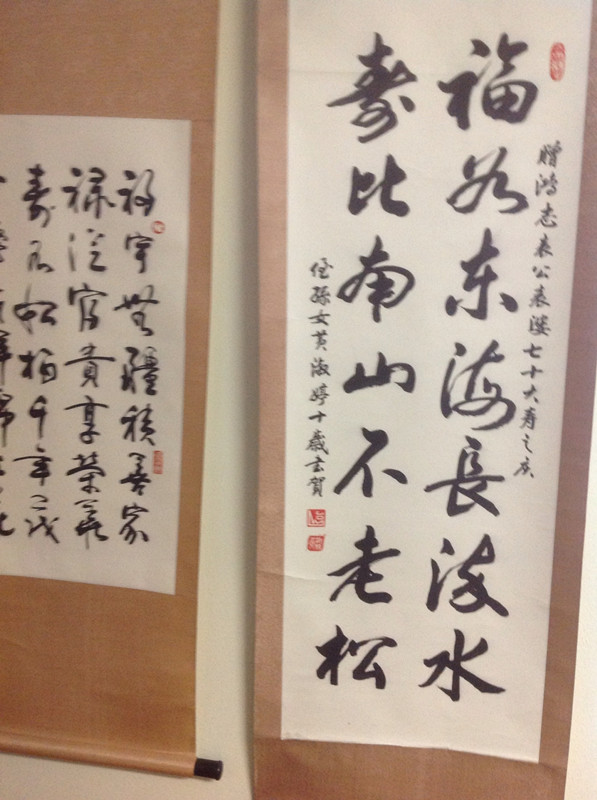 贈鴻志表公表婆七十大寿之庆
福如东海長流水
寿比南山不老松
侄孫女黄淑婷十歲书賀
福宇無疆積善家
禄從官貴享荣華
寿如松柏千年茂